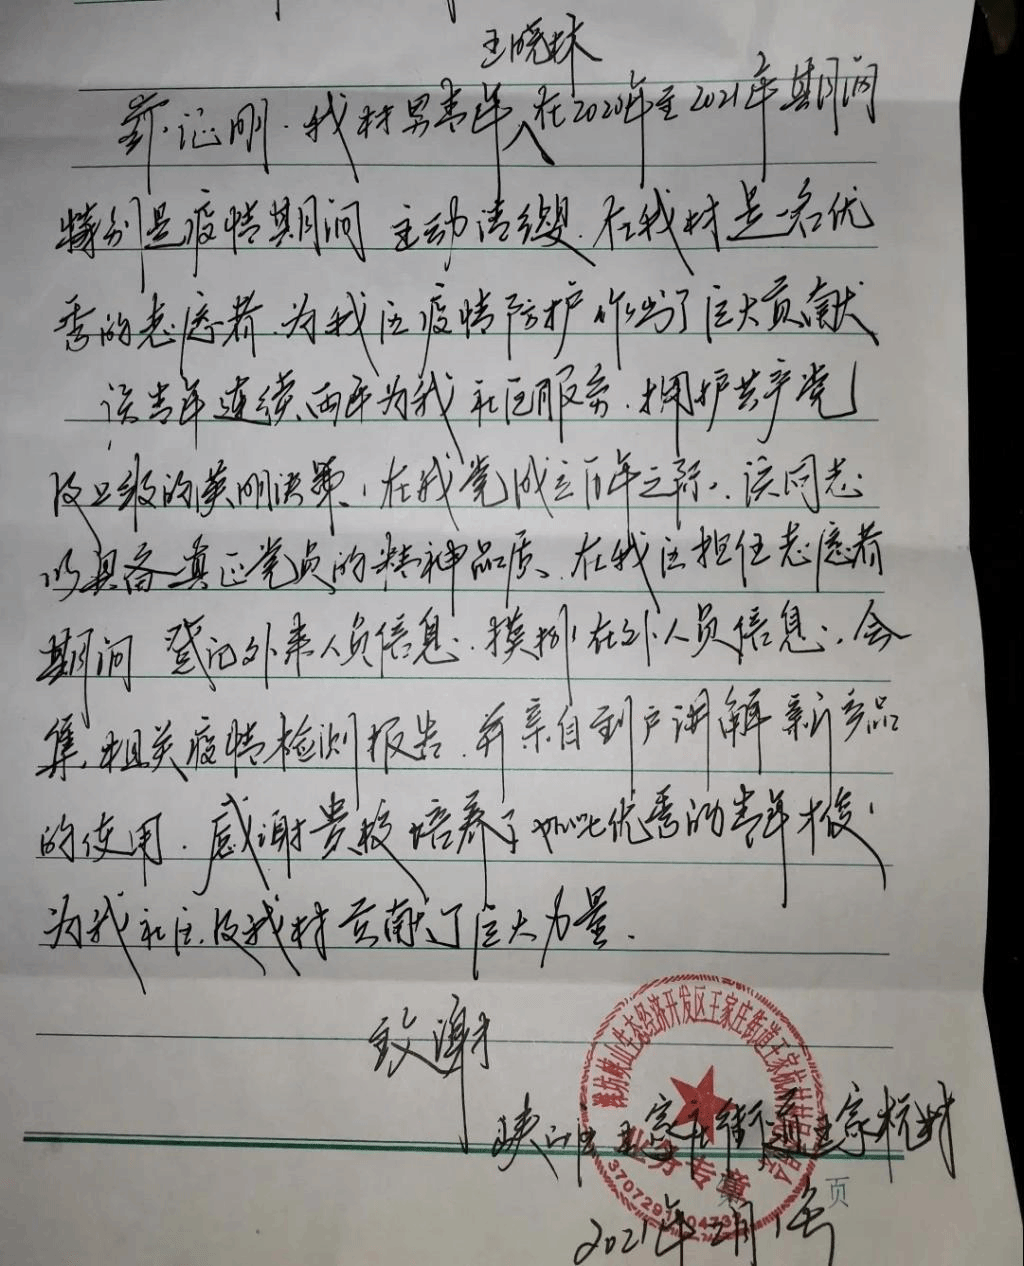 王晓林
兹证明.我村男青年在2020年至2021年期间
特别是疫情期间 主动请缨.在我村是一名优
秀的志愿者.为我区疫情防护作出了巨大贡献
该青年连续两年为我社区服务.拥护共产党
及上级的英明决策.在我党成立百年之际.该同志
以具备真正党员的精神品质.在我区担任志愿者
期间 登记外来人员信息.摸排在外人员信息.会
集相关疫情检测报告.并亲自到户讲解新产品
的使用.感谢贵校培养了如此优秀的青年才俊
为我社区.及我村贡献了巨大力量.
致谢
潍坊峡山生态经济开发区王家庄街道王家杭村
业务专章
峡山区王家庄街道王家杭村
页
2021年2月1号